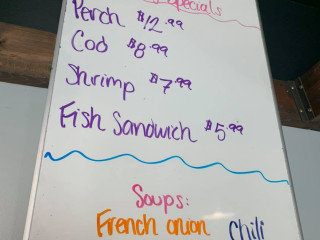 Specials
Perch $12.99
Cod $8.99
Shrimp $7.99
Fish Sandwich $5.99
Soups:
French onion Chili